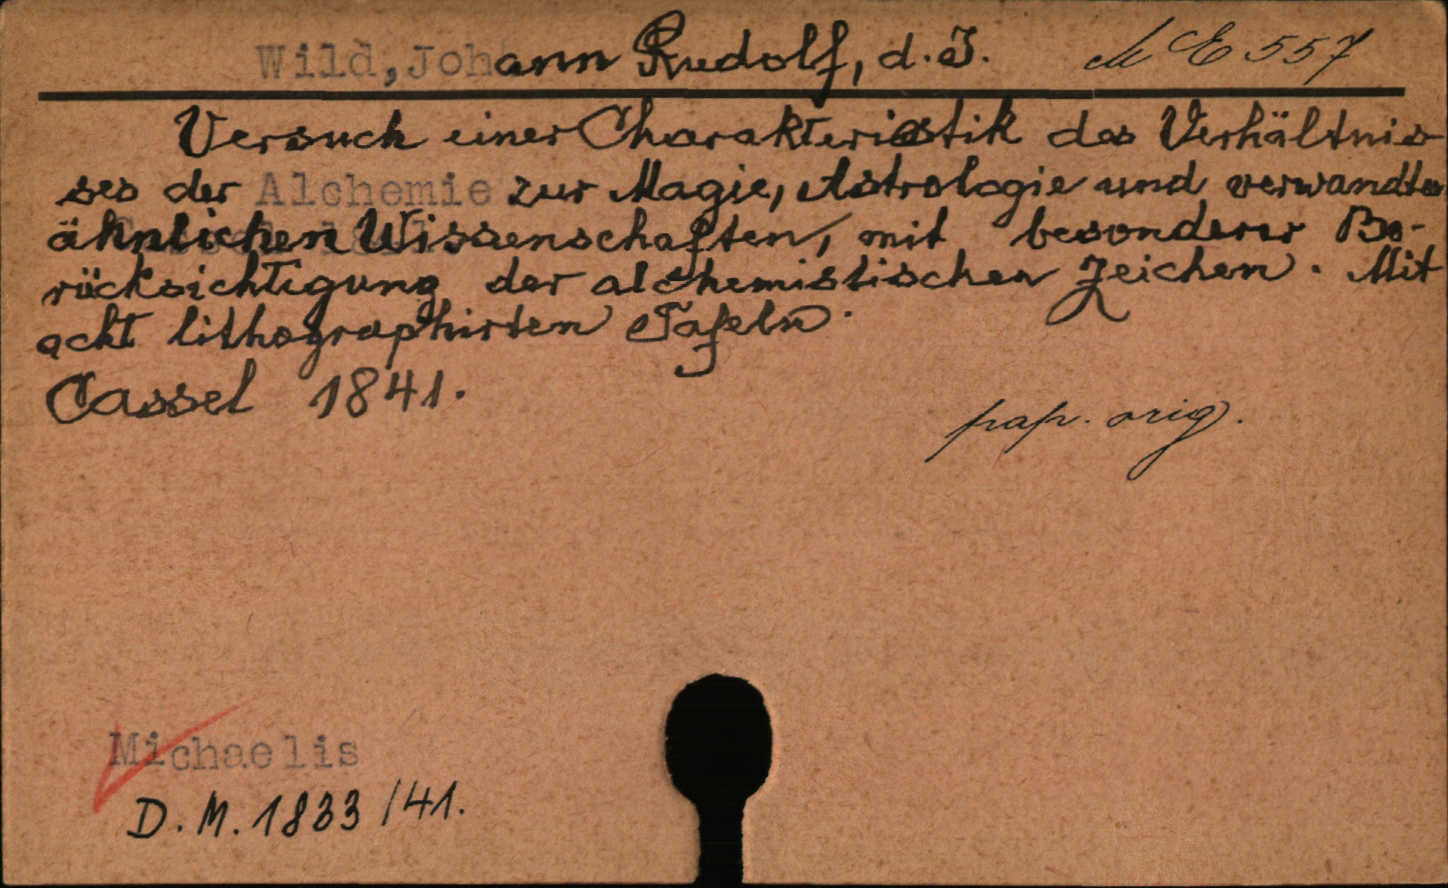 Wild, Johann Rudolf, d. J. M E 557
Versuch einer Charakteristik des Verhältnis
ses der Alchemie zur Magie, Astrologie und verwandter
ähnlichen Wissenschaften, mit besonderer Be-
rücksichtigung der alchemistischen Zeichen. Mit
acht lithographirten Tafeln.
Cassel 1841.
pap. orig.
Michaelis
D. M. 1833/41.